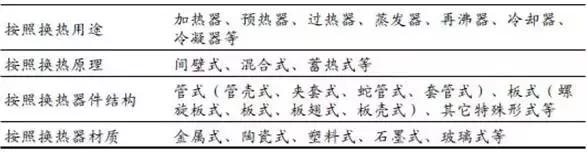 按照换热用途
加热器、预热器、过热器、蒸发器、再沸器、冷却器、
冷凝器等
按照换热原理
间壁式、混合式、蓄热式等
按照换热器件结构
管式（管壳式、夹套式、蛇管式、套管式）、板式（螺
旋板式、板式、板翅式、板壳式）、其它特殊形式等
按照换热器材质
金属式、陶瓷式、塑料式、石墨式、玻璃式等